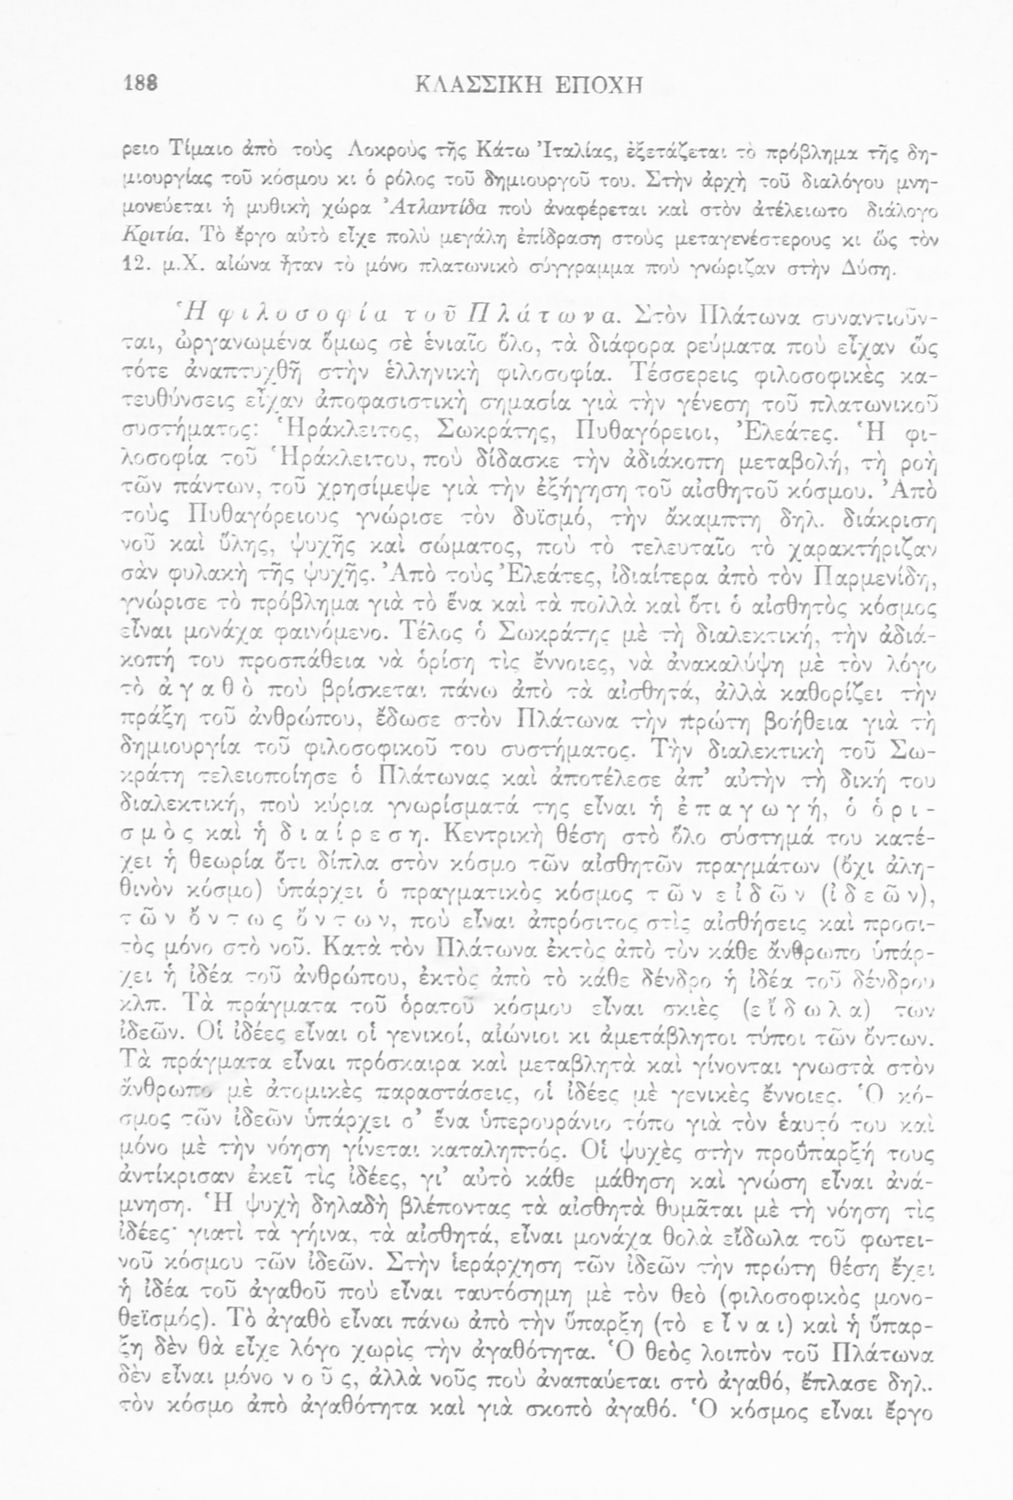 188 ΚΛΑΣΣΙΚΗ ΕΠΟΧΗ
ρειο Τίμαιο ἀπὸ τοὺς Λοκροὺς τῆς Κάτω Ἰταλίας, ἐξετάζεται τὸ πρόβλημα τῆς δη-
μιουργίας τοῦ κόσμου κι ὁ ρόλος τοῦ δημιουργοῦ του. Στὴν ἀρχὴ τοῦ διαλόγου μνη-
μονεύεται ἡ μυθικὴ χώρα Ἀτλαντίδα ποὺ ἀναφέρεται καὶ στὸν ἀτέλειωτο διάλογο
Κριτία. Τὸ ἔργο αὐτὸ εἶχε πολὺ μεγάλη ἐπίδραση στοὺς μεταγενέστερους κι ὥς τὸν
12. μ.Χ. αἰώνα ἦταν τὸ μόνο πλατωνικὸ σύγγραμμα ποὺ γνώριζαν στὴν Δύση.
Ἡ φιλοσοφία τοῦ Πλάτωνα. Στὸν Πλάτωνα συναντιοῦν-
ται, ὠργανωμένα ὅμως σὲ ἑνιαῖο ὅλο, τὰ διάφορα ρεύματα ποὺ εἶχαν ὥς
τότε ἀναπτυχθῆ στὴν ἑλληνικὴ φιλοσοφία. Τέσσερεις φιλοσοφικὲς κα-
τευθύνσεις εἶχαν ἀποφασιστικὴ σημασία γιὰ τὴν γένεση τοῦ πλατωνικοῦ
συστήματος: Ἡράκλειτος, Σωκράτης, Πυθαγόρειοι, Ἐλεάτες. Ἡ φι-
λοσοφία τοῦ Ἡράκλειτου, ποὺ δίδασκε τὴν ἀδιάκοπη μεταβολή, τὴ ροὴ
τῶν πάντων, τοῦ χρησίμεψε γιὰ τὴν ἐξήγηση τοῦ αἰσθητοῦ κόσμου. Ἀπὸ
τοὺς Πυθαγόρειους γνώρισε τὸν δυϊσμό, τὴν ἄκαμπτη δηλ. διάκριση
νοῦ καὶ ὕλης, ψυχῆς καὶ σώματος, ποὺ τὸ τελευταῖο τὸ χαρακτήριζαν
σὰν φυλακὴ τῆς ψυχῆς. Ἀπὸ τοὺς Ἐλεάτες, ἰδιαίτερα ἀπὸ τὸν Παρμενίδη,
γνώρισε τὸ πρόβλημα γιὰ τὸ ἕνα καὶ τὰ πολλὰ καὶ ὅτι ὁ αἰσθητὸς κόσμος
εἶναι μονάχα φαινόμενο. Τέλος ὁ Σωκράτης μὲ τὴ διαλεκτική, τὴν ἀδιά-
κοπή του προσπάθεια νὰ ὁρίση τὶς ἔννοιες, νὰ ἀνακαλύψη μὲ τὸν λόγο
τὸ ἀγαθὸ ποὺ βρίσκεται πάνω ἀπὸ τὰ αἰσθητά, ἀλλὰ καθορίζει τὴν
πράξη τοῦ ἀνθρώπου, ἔδωσε στὸν Πλάτωνα τὴν πρώτη βοήθεια γιὰ τὴ
δημιουργία τοῦ φιλοσοφικοῦ του συστήματος. Τὴν διαλεκτικὴ τοῦ Σω-
κράτη τελειοποίησε ὁ Πλάτωνας καὶ ἀποτέλεσε ἀπ’ αὐτὴν τὴ δική του
διαλεκτική, ποὺ κύρια γνωρίσματά της εἶναι ἡ ἐπαγωγή, ὁ ὁρι-
σμὸς καὶ ἡ διαίρεση. Κεντρικὴ θέση στὸ ὅλο σύστημά του κατέ-
χει ἡ θεωρία ὅτι δίπλα στὸν κόσμο τῶν αἰσθητῶν πραγμάτων (ὄχι ἀλη-
θινὸν κόσμο) ὑπάρχει ὁ πραγματικὸς κόσμος τῶν εἰδῶν (ἰδεῶν),
τῶν ὄντως ὄντων, ποὺ εἶναι ἀπρόσιτος στὶς αἰσθήσεις καὶ προσι-
τὸς μόνο στὸ νοῦ. Κατὰ τὸν Πλάτωνα ἐκτὸς ἀπὸ τὸν κάθε ἄνθρωπο ὑπάρ-
χει ἡ ἰδέα τοῦ ἀνθρώπου, ἐκτὸς ἀπὸ τὸ κάθε δένδρο ἡ ἰδέα τοῦ δένδρου
κλπ. Τὰ πράγματα τοῦ ὁρατοῦ κόσμου εἶναι σκιὲς (εἴδωλα) των
ἰδεῶν. Οἱ ἰδέες εἶναι οἱ γενικοί, αἰώνιοι κι ἀμετάβλητοι τύποι τῶν ὄντων.
Τὰ πράγματα εἶναι πρόσκαιρα καὶ μεταβλητὰ καὶ γίνονται γνωστὰ στὸν
ἄνθρωπο μὲ ἀτομικὲς παραστάσεις, οἱ ἰδέες μὲ γενικὲς ἔννοιες. Ὁ κό-
σμος τῶν ἰδεῶν ὑπάρχει σ’ ἕνα ὑπερουράνιο τόπο γιὰ τὸν ἑαυτό του καὶ
μόνο μὲ τὴν νόηση γίνεται καταληπτός. Οἱ ψυχὲς στὴν προΰπαρξή τους
ἀντίκρισαν ἐκεῖ τὶς ἰδέες, γι’ αὐτὸ κάθε μάθηση καὶ γνώση εἶναι ἀνά-
μνηση. Ἡ ψυχὴ δηλαδὴ βλέποντας τὰ αἰσθητὰ θυμᾶται μὲ τὴ νόηση τὶς
ἰδέες· γιατὶ τὰ γήινα, τὰ αἰσθητά, εἶναι μονάχα θολὰ εἴδωλα τοῦ φωτει-
νοῦ κόσμου τῶν ἰδεῶν. Στὴν ἱεράρχηση τῶν ἰδεῶν τὴν πρώτη θέση ἔχει
ἡ ἰδέα τοῦ ἀγαθοῦ ποὺ εἶναι ταυτόσημη μὲ τὸν θεὸ (φιλοσοφικὸς μονο-
θεϊσμός). Τὸ ἀγαθὸ εἶναι πάνω ἀπὸ τὴν ὕπαρξη (τὸ εἶναι) καὶ ἡ ὕπαρ-
ξη δὲν θὰ εἶχε λόγο χωρὶς τὴν ἀγαθότητα. Ὁ θεὸς λοιπὸν τοῦ Πλάτωνα
δὲν εἶναι μόνο νοῦς, ἀλλὰ νοῦς ποὺ ἀναπαύεται στὸ ἀγαθό, ἔπλασε δηλ.
τὸν κόσμο ἀπὸ ἀγαθότητα καὶ γιὰ σκοπὸ ἀγαθό. Ὁ κόσμος εἶναι ἔργο